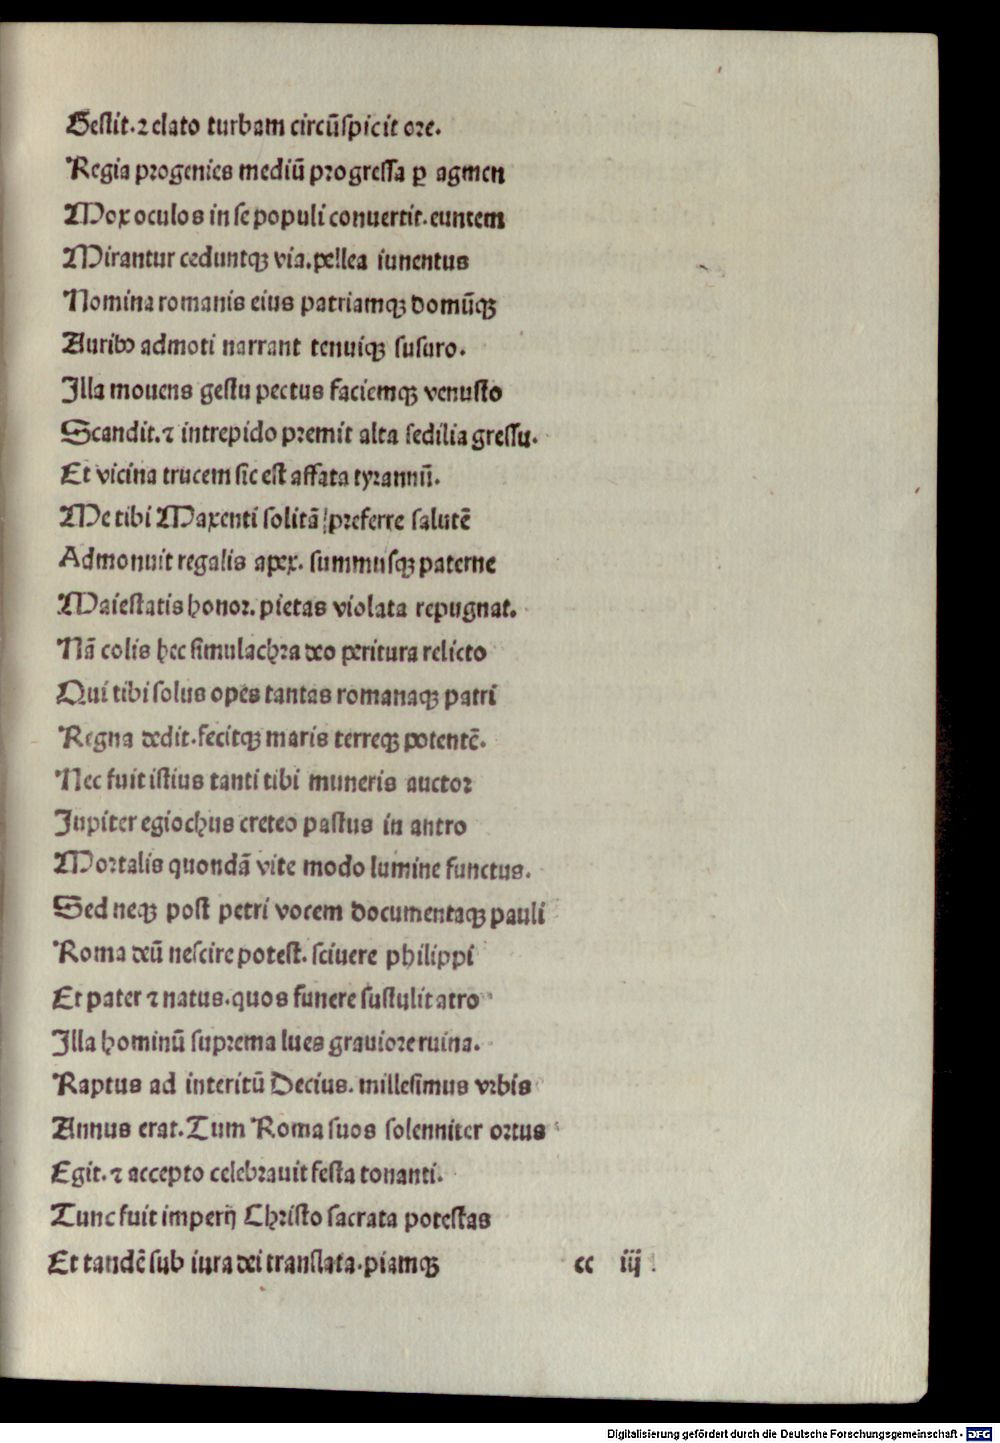 Gestit. ⁊ elato turbam circũspicit ore.
Regia progenies mediũ progressa ꝑ agmen
Mox oculos in se populi conuertit. euntem
Mirantur ceduntqꝫ via. pellea iunentus
Nomina romanis eius patriamqꝫ domũqꝫ
Auribꝰ admoti narrant tenuiqꝫ susuro.
Illa mouens gestu pectus faciemqꝫ venusto
Scandit. ⁊ intrepido premit alta sedilia gressu.
Et vicina trucem sic est affata tyrannũ.
Me tibi Maxenti solitã preferre salutẽ
Admonuit regalis apex. summusqꝫ paterne
Maiestatis honor. pietas violata repugnat.
Nã colis hec simulachra deo peritura relicto
Qui tibi solus opes tantas romanaqꝫ patri
Regna dedit. fecitqꝫ maris terreqꝫ potentẽ.
Nec fuit istius tanti tibi muneris auctor
Jupiter egiochus creteo pastus in antro
Mortalis quondã vite modo lumine functus.
Sed neqꝫ post petri vocem documentaqꝫ pauli
Roma deũ nescire potest. sciuere philippi
Et pater ⁊ natus. quos funere sustulit atro
Illa hominũ suprema lues grauiore ruina.
Raptus ad interitũ Decius. millesimus vrbis
Annus erat. Tum Roma suos solenniter ortus
Egit. ⁊ accepto celebrauit festa tonanti.
Tunc fuit imperij Christo sacrata potestas
Et tandẽ sub iura dei translata. piamqꝫ cc iij
Digitalisierung gefördert durch die Deutsche Forschungsgemeinschaft - DFG